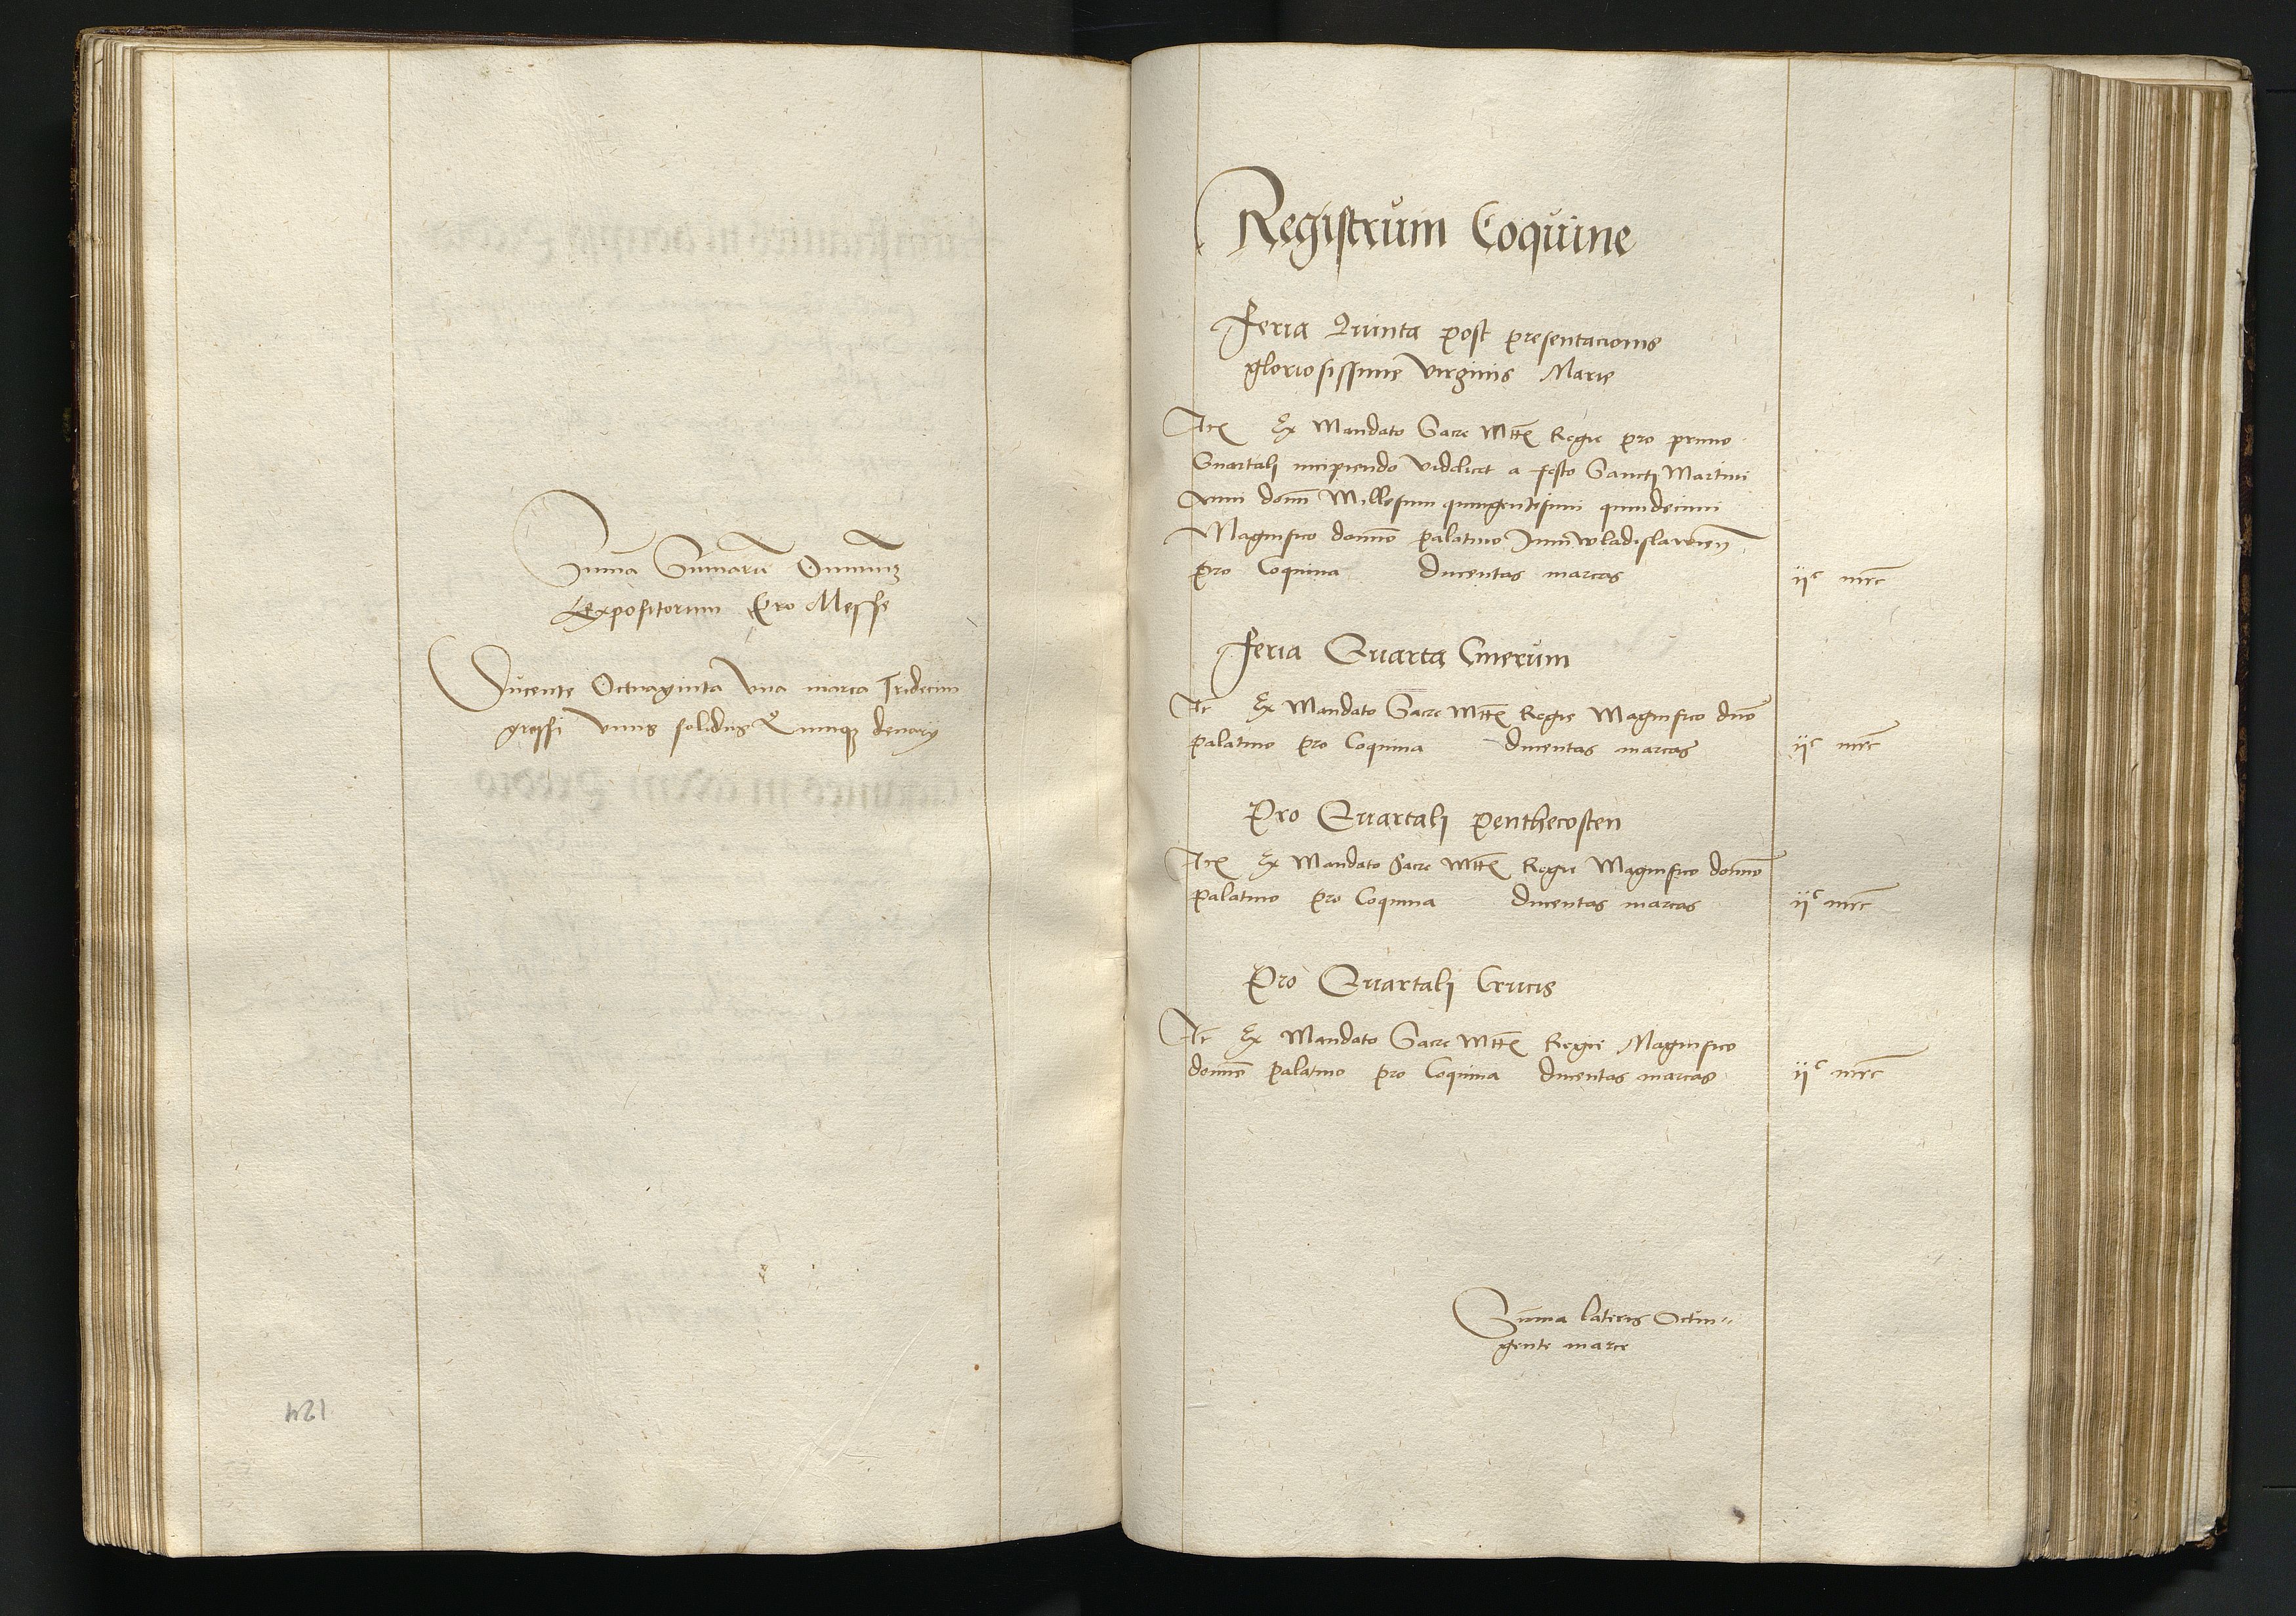 Suma Sumaru Omniuz
Expositorum Pro Messe
Ducente Octuaginta Una marca Tridecim
grossi Unus solidus Quinqz denarij
124
Registrum Coquine
Feria Quinta post presentacionis
gloriosissime virginis Marie
Ite Ex Mandato Sacre Mtte Regie pro primo
Quartali incipiendo videlicet a festo Sancti Martini
Anni domi Millesimi quingentesimi quindecimi
Magnifico domino palatino Juniwladislavien
pro Coquina ducentas marcas ijc mrc
Feria Quarta Cinerum
It Ex Mandato Sacre Mtte Regie Magnifico dno
palatino pro Coquina ducentas marcas ijc mrc
Pro Quartali penthecosten
Ite Ex Mandato Sacre Mtte Regie Magnifico domino
palatino pro Coquina ducentas marcas ijc mrc
Pro Quartali Crucis
It Ex Mandato Sacre Mtte Regie Magnifico
domino palatino pro Coquina ducentas marcas ijc mrc
Suma lateris Octin"
gente marce